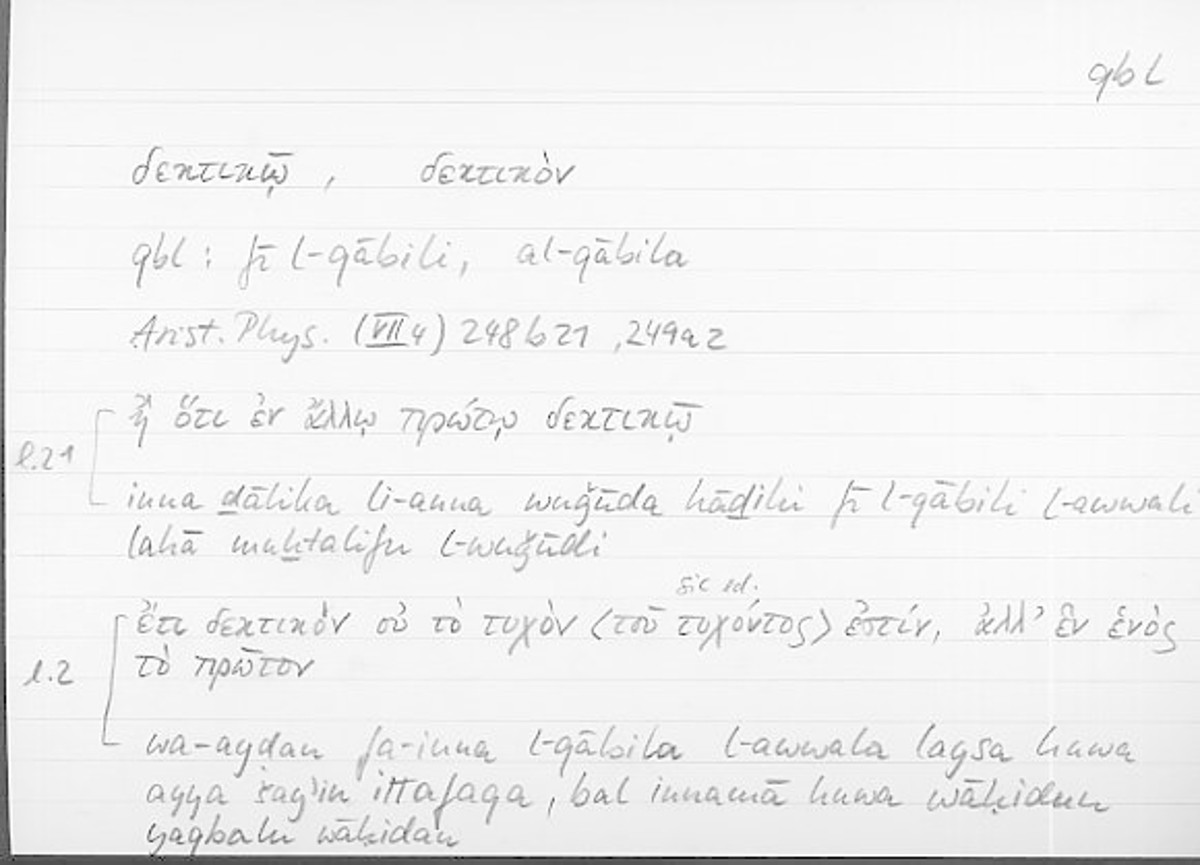 qbl
δεκτικῷ, δεκτικὸν
qbl: fī l-qābili, al-qābila
Arist. Phys. (VII 4) 248b21, 249a2
ἢ ὅτι ἐν ἄλλῳ πρώτῳ δεκτικῷ
l.21
inna ḏālika li-anna wuǧūda hāḏihi fī l-qābili l-awwali
lahā muḫtalifu l-wuǧūdi
sic ed.
ἔτι δεκτικὸν οὐ τὸ τυχὸν <τοῦ τυχόντος> ἐστίν, ἀλλ' ἓν ἑνὸς
l.2
τὸ πρῶτον
wa-ayḍan fa-inna l-qābila l-awwala laysa huwa
ayya šayʾin ittafaqa, bal innamā huwa wāḥidun
yaqbalu wāḥidan